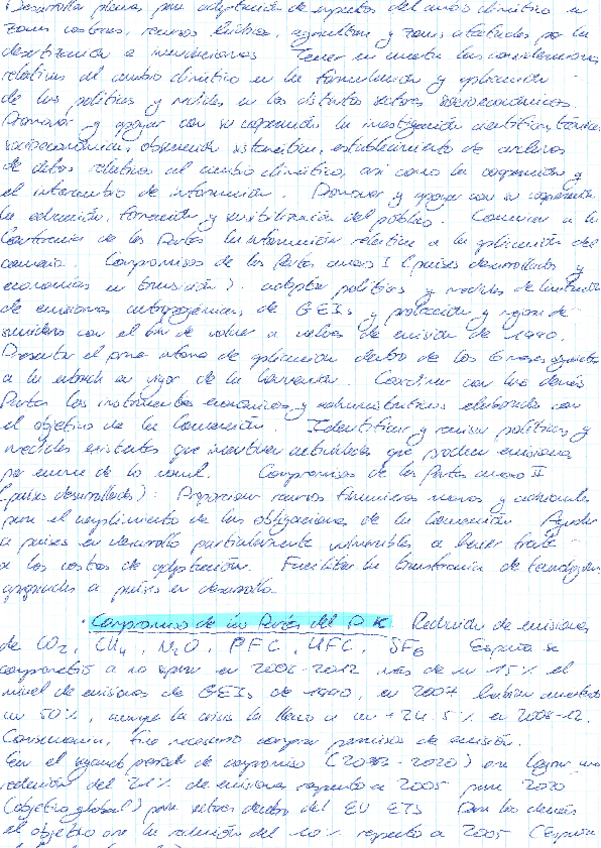 Desarrollar planes para adaptación de impactos del cambio climático en
zonas costeras, recursos hídricos, agricultura y zonas afectadas por la
desertización e inundaciones. Tener en cuenta las consideraciones
relativas al cambio climático en la formulación y aplicación
de las políticas y medidas en los distintos sectores socioeconómicos.
Promover y apoyar con su cooperación la investigación científica, técnica,
socioeconómica, observación sistemática, establecimiento de archivos
de datos relativos al cambio climático, así como la cooperación y
el intercambio de información. Promover y apoyar con su cooperación
la educación, formación y sensibilización del público. Comunicar a la
Conferencia de las Partes la información relativa a la aplicación del
convenio. Compromisos de las Partes anexo I (países desarrollados y
economías en transición): adoptar políticas y medidas de limitación
de emisiones antropogénicas de GEIs y protección y mejora de
sumideros con el fin de volver a valores de emisión de 1990.
Presentar el programa de aplicación dentro de los 6 meses siguientes
a la entrada en vigor de la Convención. Coordinar con las demás
Partes los instrumentos económicos y administrativos elaborados con
el objetivo de la Convención. Identificar y revisar políticas y
medidas existentes que incentiven actividades que produzcan emisiones
por encima de lo normal. Compromisos de las Partes anexo II
(países desarrollados): Proporcionar recursos financieros nuevos y adicionales
para el cumplimiento de las obligaciones de la Convención. Ayudar
a países en desarrollo particularmente vulnerables a hacer frente
a los costos de adaptación. Facilitar la transferencia de tecnologías
apropiadas a países en desarrollo.
· Compromiso de las Partes del PK. Reducción de emisiones
de CO2, CH4, N2O, PFC, HFC, SF6. España se
comprometió a no superar en 2008-2012 más de un 15% el
nivel de emisiones de GEIs de 1990, en 2007 habían aumentado
un 50%, aunque la crisis la llevó a un +24.5% en 2008-12.
Consecuencia, fue necesario comprar permisos de emisión.
En el segundo periodo de compromiso (2012-2020) era lograr una
reducción del 21% de emisiones respecto a 2005 para 2020
(objetivo global) para sectores dentro del EU ETS. Para los demás
el objetivo era la reducción del 10% respecto a 2005 (España